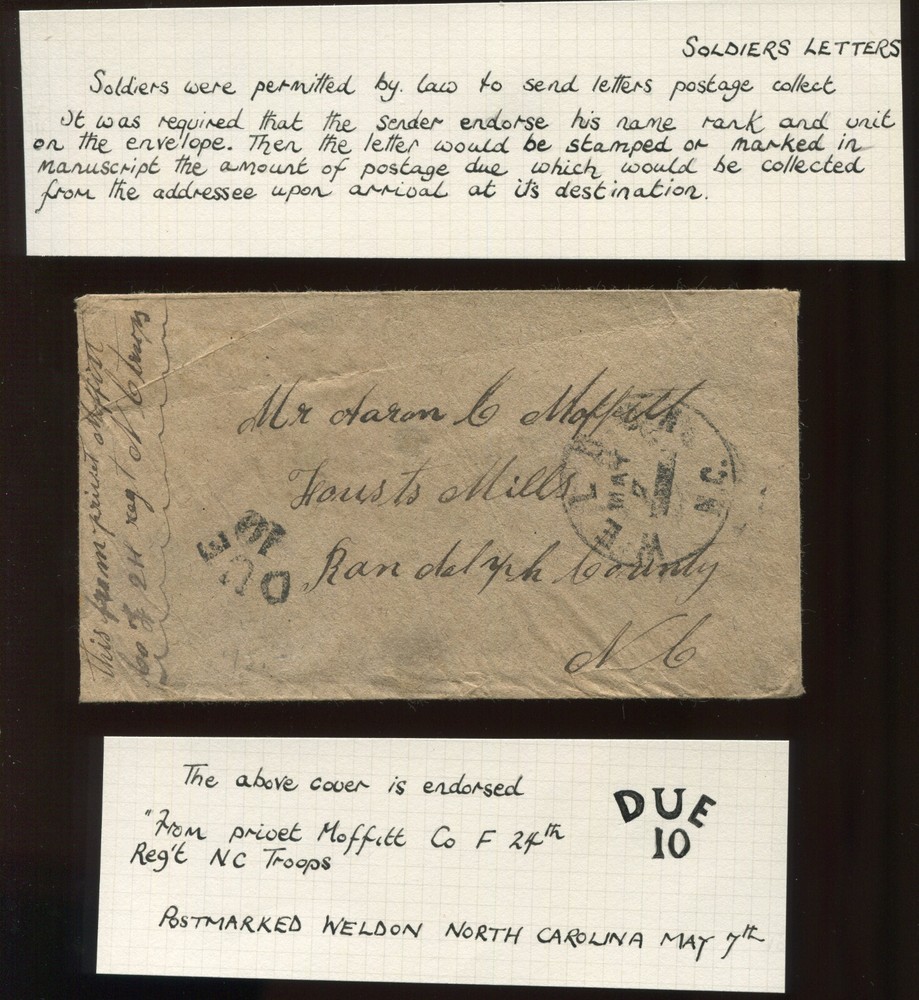 SOLDIERS LETTERS
Soldiers were permitted by. law to send letters postage collect
It was required that the sender endorse his name rank and unit
on the envelope. Then the letter would be stamped or marked in
manuscript the amount of postage due which would be collected
from the addressee upon arrival at its destination.
This from privet Moffitt
Co F 24 regt N C troops
Mr Aaron C Moffitt
Fousts Mills
Randolph County
N C
WELDON N.C.
MAY
7
DUE
10
The above cover is endorsed
"From privet Moffitt Co F 24th
Reg't NC Troops
DUE
10
POSTMARKED WELDON NORTH CAROLINA MAY 7th